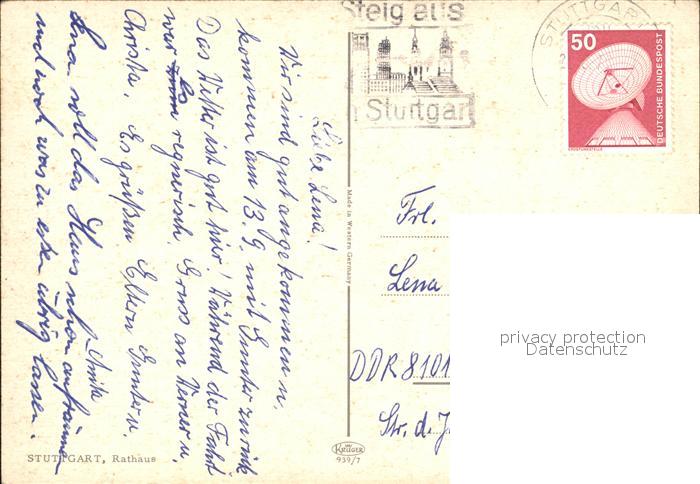 Liebe Lena!
Wir sind gut angekommen u.
kommen am 13.9. mit Gunter zurück
Das Wetter ist gut hier! Während der Fahrt
war es regnerisch. Gruss an Werner u.
Christa. Es grüßen Eltern Gunter u.
Anita
Lena soll das Haus schön aufräumen
und noch was zu essen übrig lassen.
STUTTGART, Rathaus
Made in Western Germany
KRÜGER
939/7
Steig aus
in Stuttgart
STUTTGART
50
DEUTSCHE BUNDESPOST
ERDFUNKSTELLE
Frl.
Lena
DDR 8101
Str. d. J
privacy protection
Datenschutz